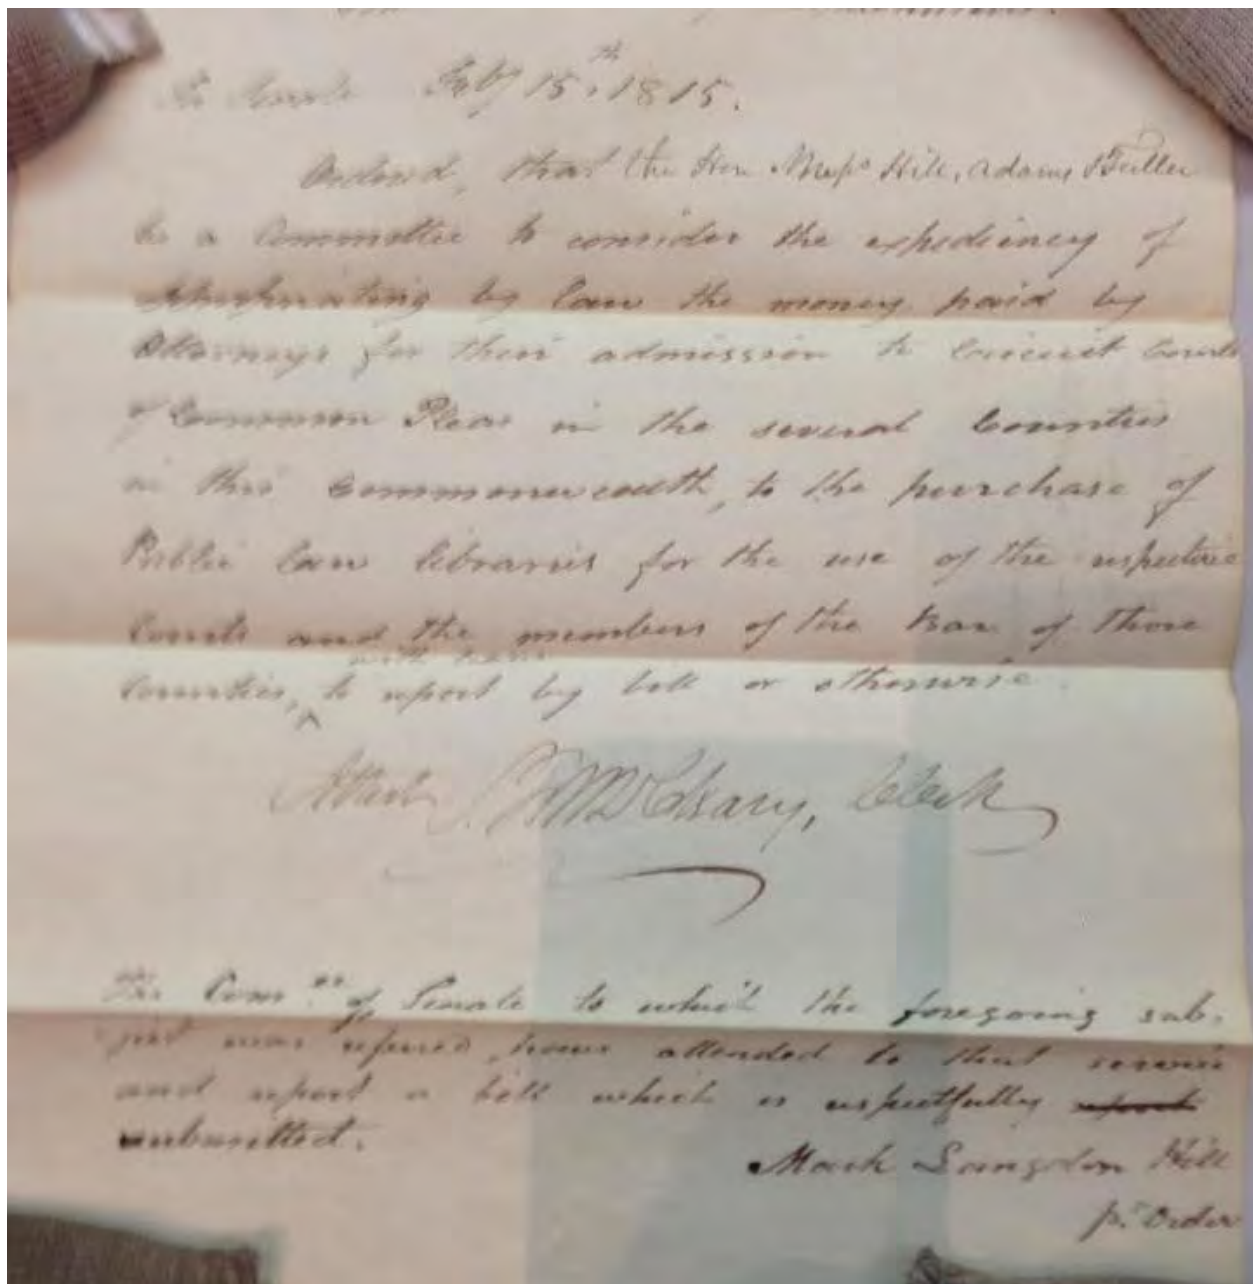 In Senate Feby 15th 1815.
Ordered, that the Hon Messrs Hill, Adams & Fuller
be a Committee to consider the expediency of
appropriating by law the money paid by
Attorneys for their admission to Circuit Courts
of Common Pleas in the several Counties
in this Commonwealth, to the purchase of
Public law libraries for the use of the respective
Courts and the members of the Bar of those
with leave
Counties, to report by bill or otherwise.
Attest S. F. McCleary, Clerk
The Comee of Senate to which the foregoing sub-
ject was referred, have attended to that service
and report a bill which is respectfully
submitted.
Mark Langdon Hill
pr Order